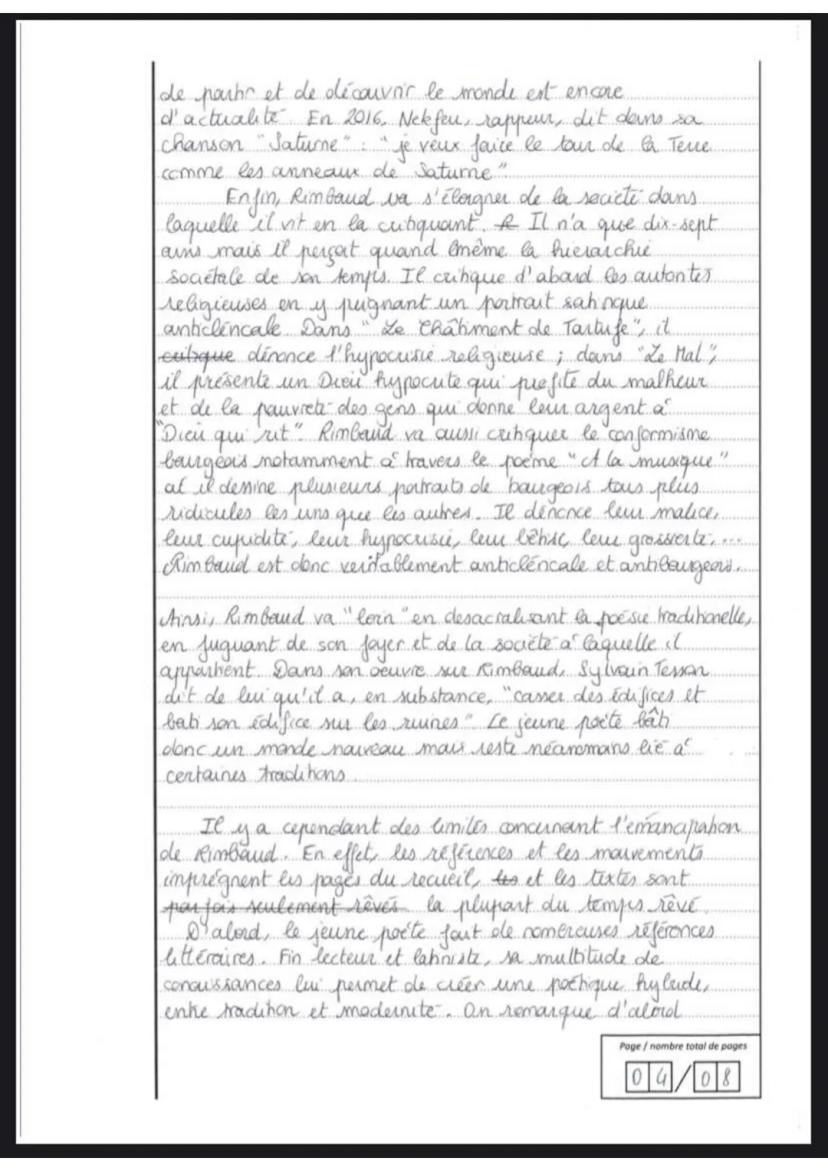 de partir et de découvrir le monde est encore
d'actualité. En 2016, Nekfeu, rappeur, dit dans sa
chanson "Saturne" : "je veux faire le tour de la Terre
comme les anneaux de Saturne"
Enfin, Rimbaud va s'éloigner de la société dans
laquelle il vit en la critiquant. Il n'a que dix-sept
ans mais il perçoit quand même la hiérarchie
sociétale de son temps. Il critique d'abord les autorités
religieuses en y peignant un portrait satirique
anticléricale. Dans "Le Châtiment de Tartufe", il
critique dénonce l'hypocrisie religieuse ; dans "Le Mal",
il présente un Dieu hypocrite qui profite du malheur
et de la pauvreté des gens qui donne leur argent à
"Dieu qui rit". Rimbaud va aussi critiquer le conformisme
bourgeois notamment à travers le poème "A la musique"
où il dessine plusieurs portraits de bourgeois tous plus
ridicules les uns que les autres. Il dénonce leur malice,
leur cupidité, leur hypocrisie, leur bêtise, leur grossierté, ...
Rimbaud est donc veritablement anticléricale et antibourgeois.
Ainsi, Rimbaud va "loin" en desacralisant la poésie traditionelle,
en fuguant de son foyer et de la société à laquelle il
appartient. Dans son oeuvre sur Rimbaud, Sylvain Tesson
dit de lui qu'il a, en substance, "casser des édifices et
bati son édifice sur les ruines". Le jeune poète bâti
donc un monde nouveau mais reste néanmoins lié à
certaines traditions.
Il y a cependant des limites concernant l'émancipation
de Rimbaud. En effet, les références et les mouvements
imprègnent les pages du recueil, les et les textes sont
parfois seulement rêvés la plupart du temps rêvé.
D'abord, le jeune poète fait de nombreuses références
littéraires. Fin lecteur et latiniste, sa multitude de
conaissances lui permet de créer une poétique hybride,
entre tradition et modernité. On remarque d'abord
Page / nombre total de pages
04/08